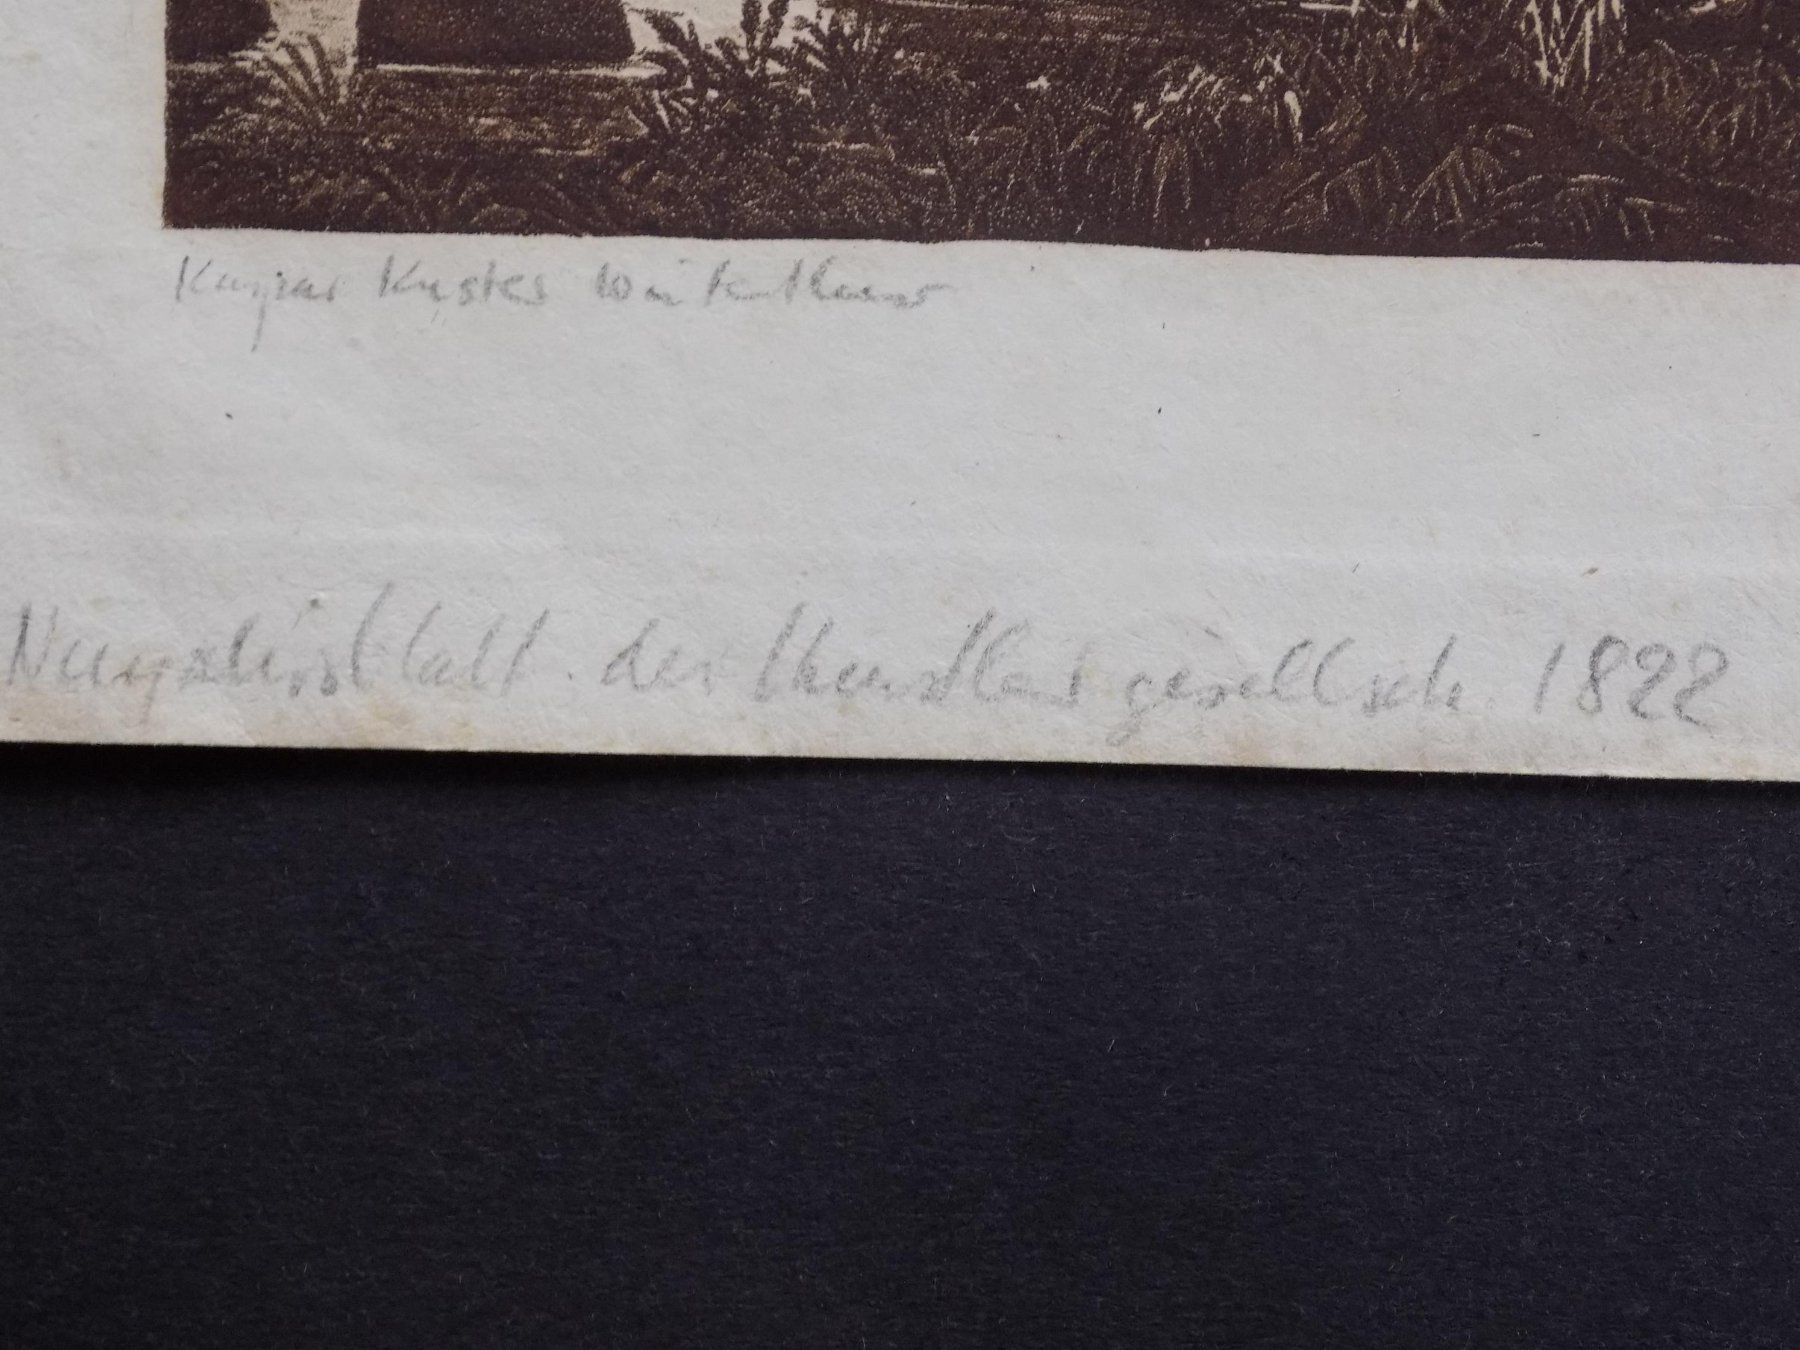 Kaspar Kuster Winterthur
Neujahrsblatt der Künstlergesellsch. 1822